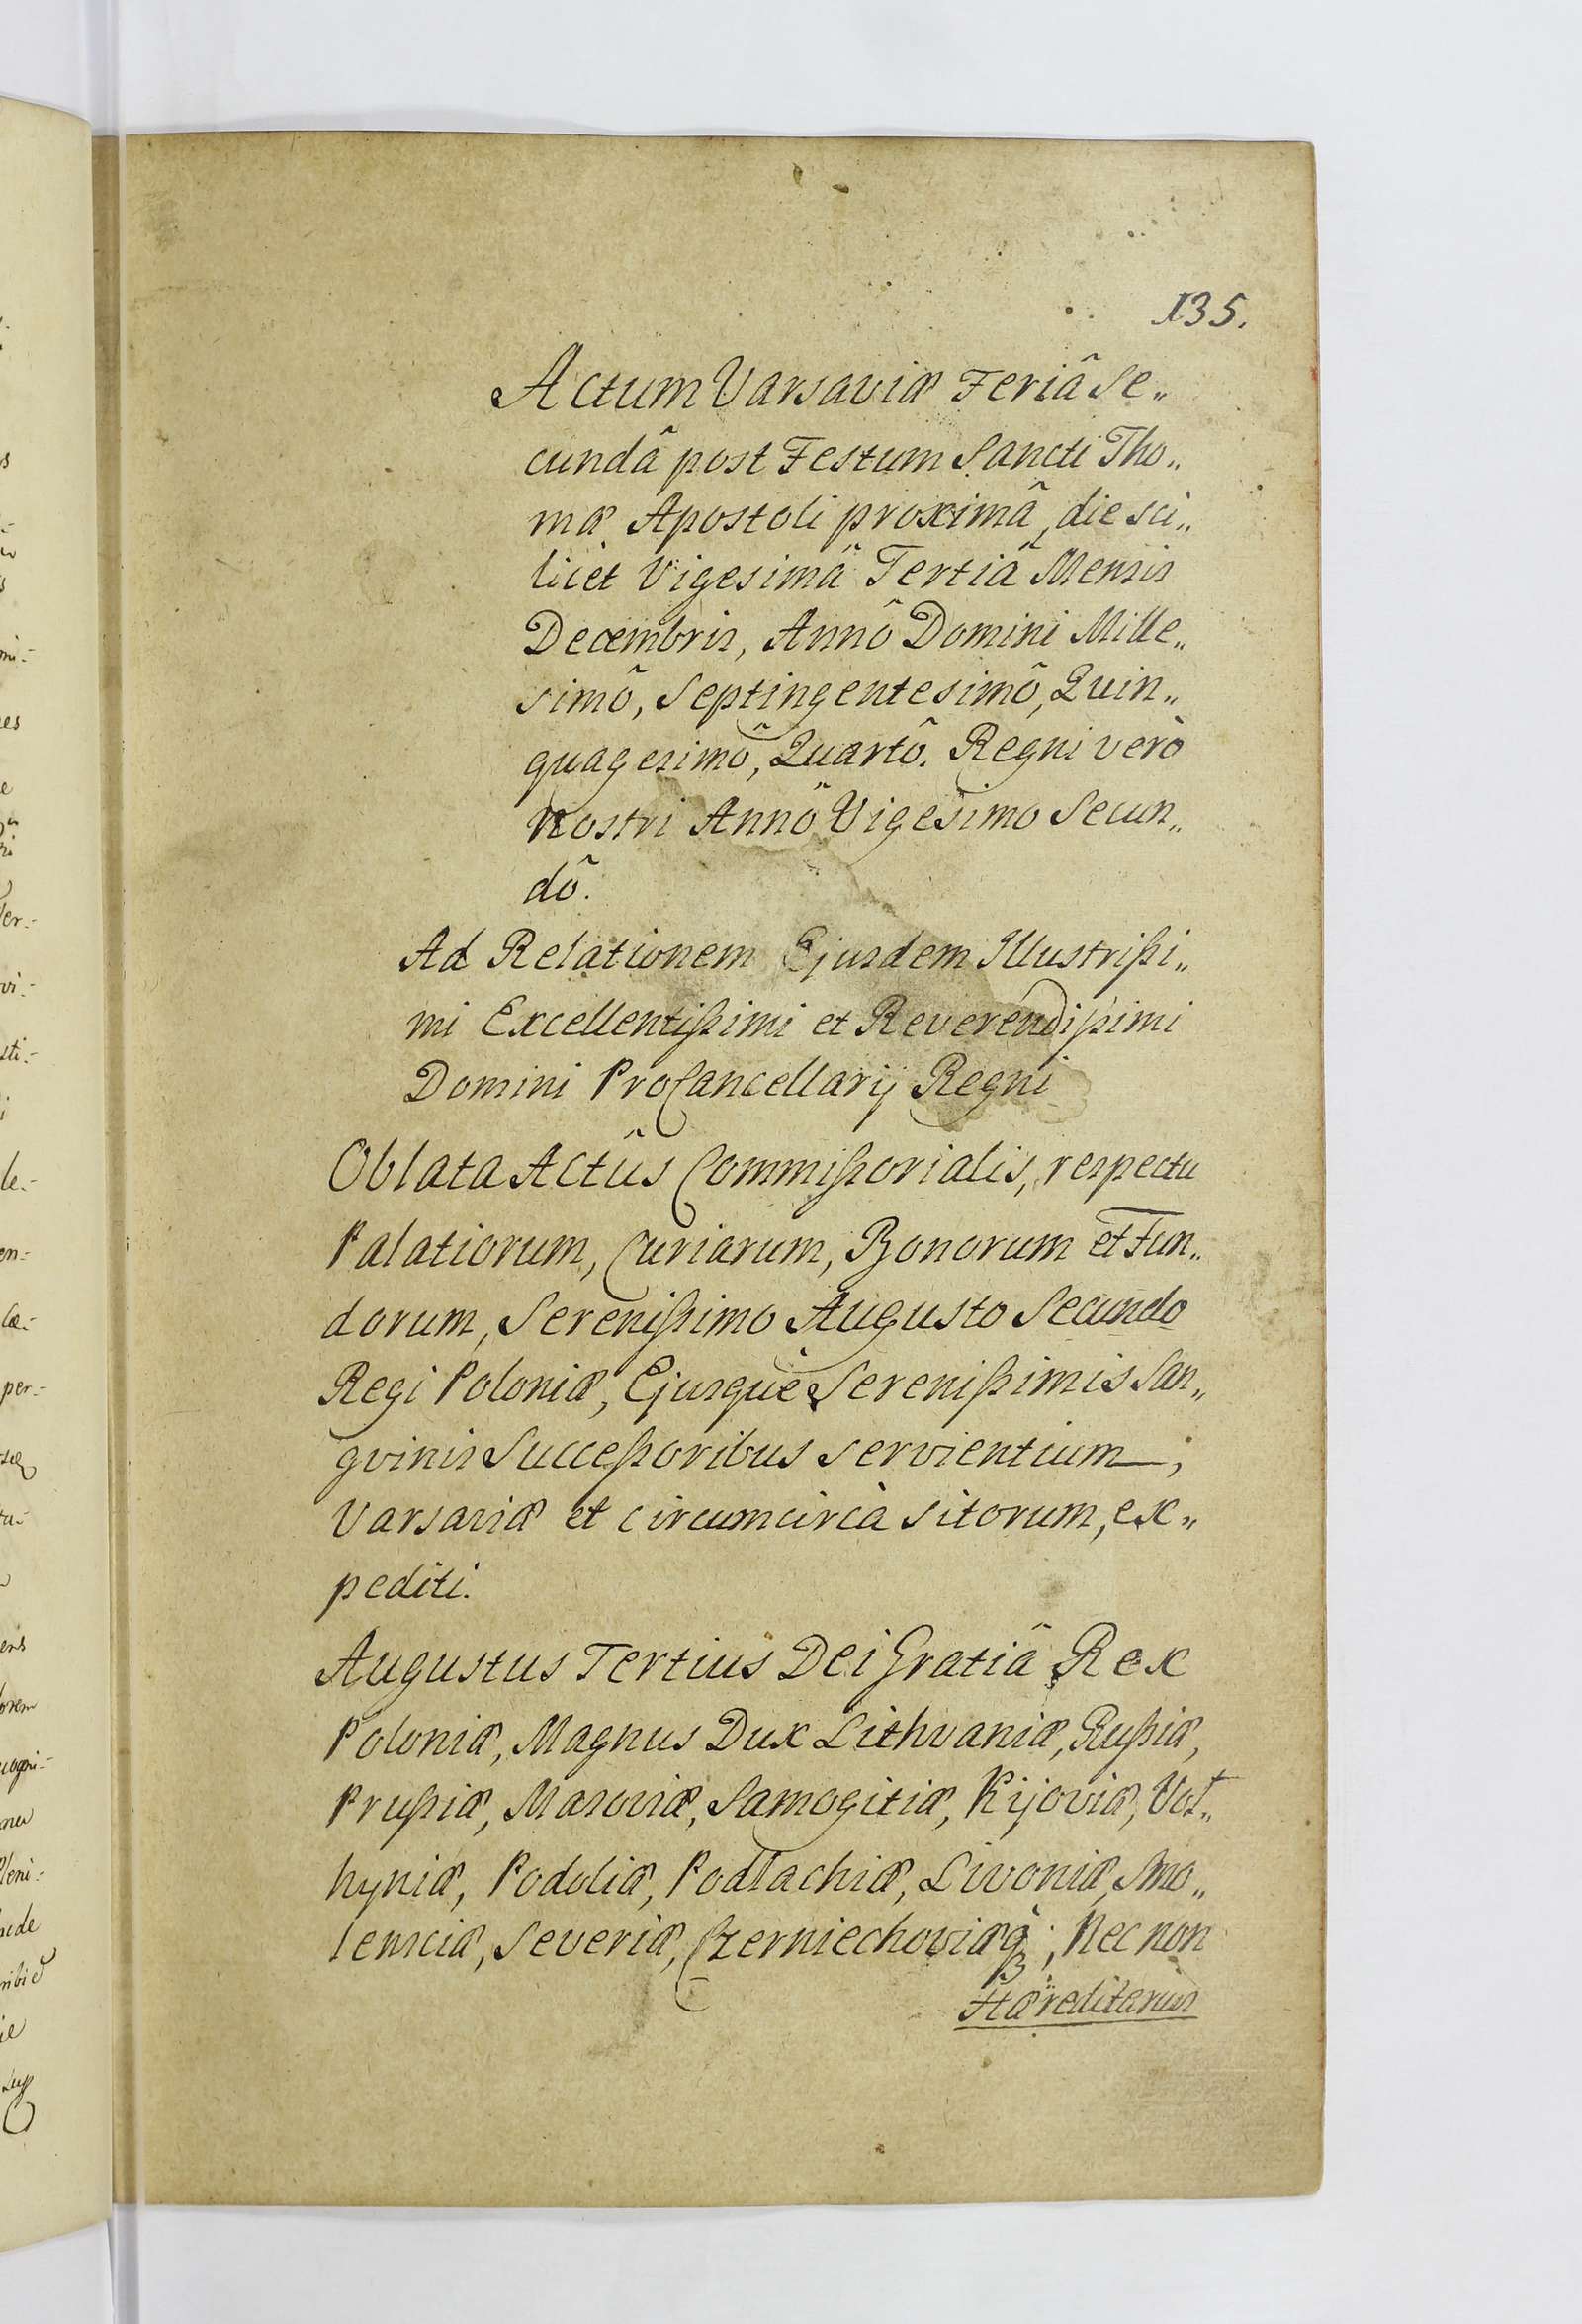 135.
Actum Varsaviæ Feriâ Se„
cundâ post Festum Sancti Tho„
mæ Apostoli proximâ, die sci„
licèt Vigesimâ Tertiâ Mensis
Decembris, Annô Domini Mille„
simô, Septingentesimô, Quin„
quagesimô, Quartô. Regni verò
Nostri Annô Vigesimo Secun„
dô.
Ad Relationem Ejusdem Illustrißi„
mi Excellentißimi et Reverendißimi
Domini ProCancellarij Regni
Oblata Actûs Commißorialis, respectu
Palatiorum, Curiarum, Bonorum et Fun„
dorum, Serenißimo Augusto Secundo
Regi Poloniæ, Ejusquè Serenißimis San„
gvinis Succeßoribus servientium,
Varsaviæ et circumcircà sitorum, ex„
pediti.
Augustus Tertius Dei Gratiâ Rex
Poloniæ, Magnus Dux Lithvaniæ, Rußiæ,
Prußiæ, Masoviæ, Samogitiæ, Kijoviæ, Voł„
hyniæ, Podoliæ, Podłachiæ, Livoniæ, Smo„
lensciæ, Severiæ, Czerniechoviæq̀;, Nec non
Hæreditarius